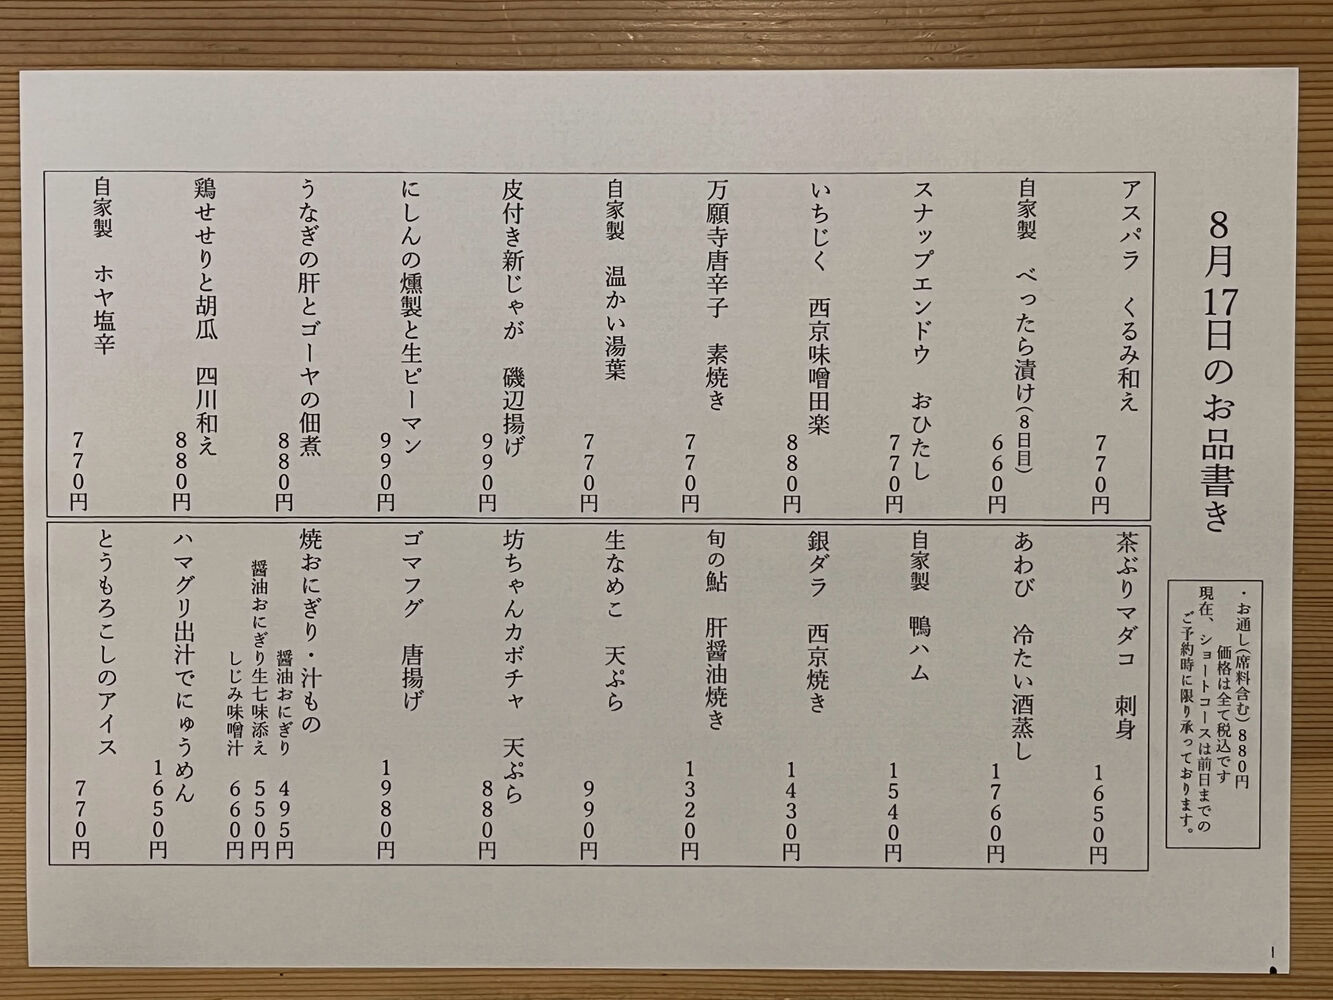 8月17日のお品書き
・お通し(席料含む)880円
価格は全て税込です
現在、ショートコースは前日までの
ご予約時に限り承っております。
アスパラ　くるみ和え
770円
自家製　べったら漬け(8日目)
660円
スナップエンドウ　おひたし
770円
いちじく　西京味噌田楽
880円
万願寺唐辛子　素焼き
770円
自家製　温かい湯葉
770円
皮付き新じゃが　磯辺揚げ
990円
にしんの燻製と生ピーマン
990円
うなぎの肝とゴーヤの佃煮
880円
鶏せせりと胡瓜　四川和え
880円
自家製　ホヤ塩辛
770円
茶ぶりマダコ　刺身
1650円
あわび　冷たい酒蒸し
1760円
自家製　鴨ハム
1540円
銀ダラ　西京焼き
1430円
旬の鮎　肝醤油焼き
1320円
生なめこ　天ぷら
990円
坊ちゃんカボチャ　天ぷら
880円
ゴマフグ　唐揚げ
1980円
焼おにぎり・汁もの
醤油おにぎり　495円
醤油おにぎり生七味添え　550円
しじみ味噌汁　660円
ハマグリ出汁でにゅうめん
1650円
とうもろこしのアイス
770円